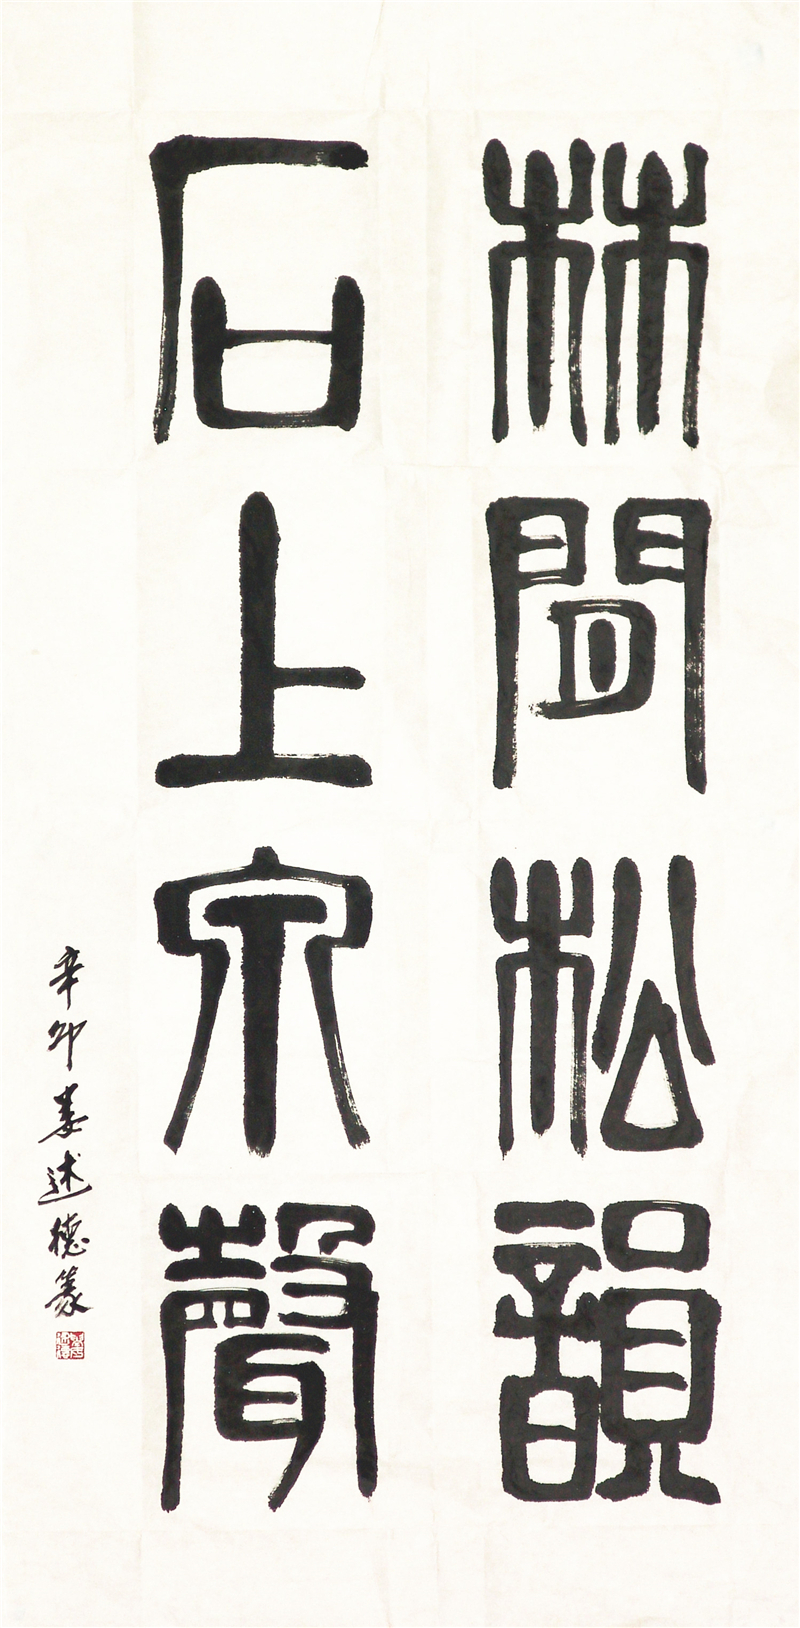 林間松韻
石上泉聲
辛卯娄述德篆